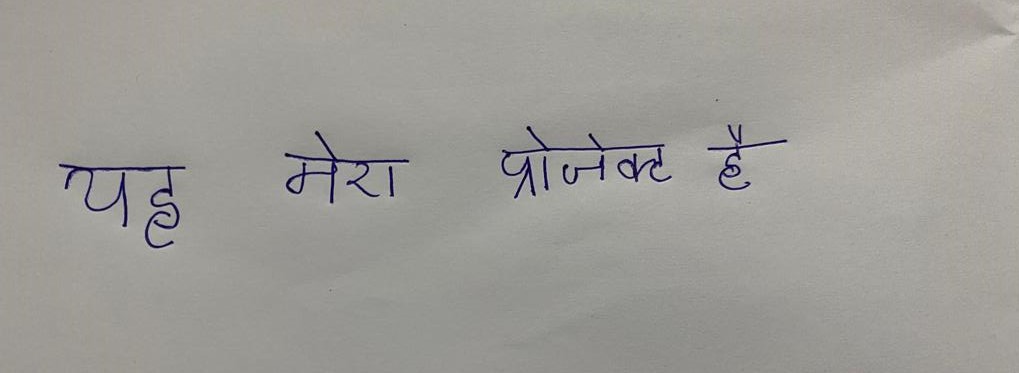 यह मेरा प्रोजेक्ट है